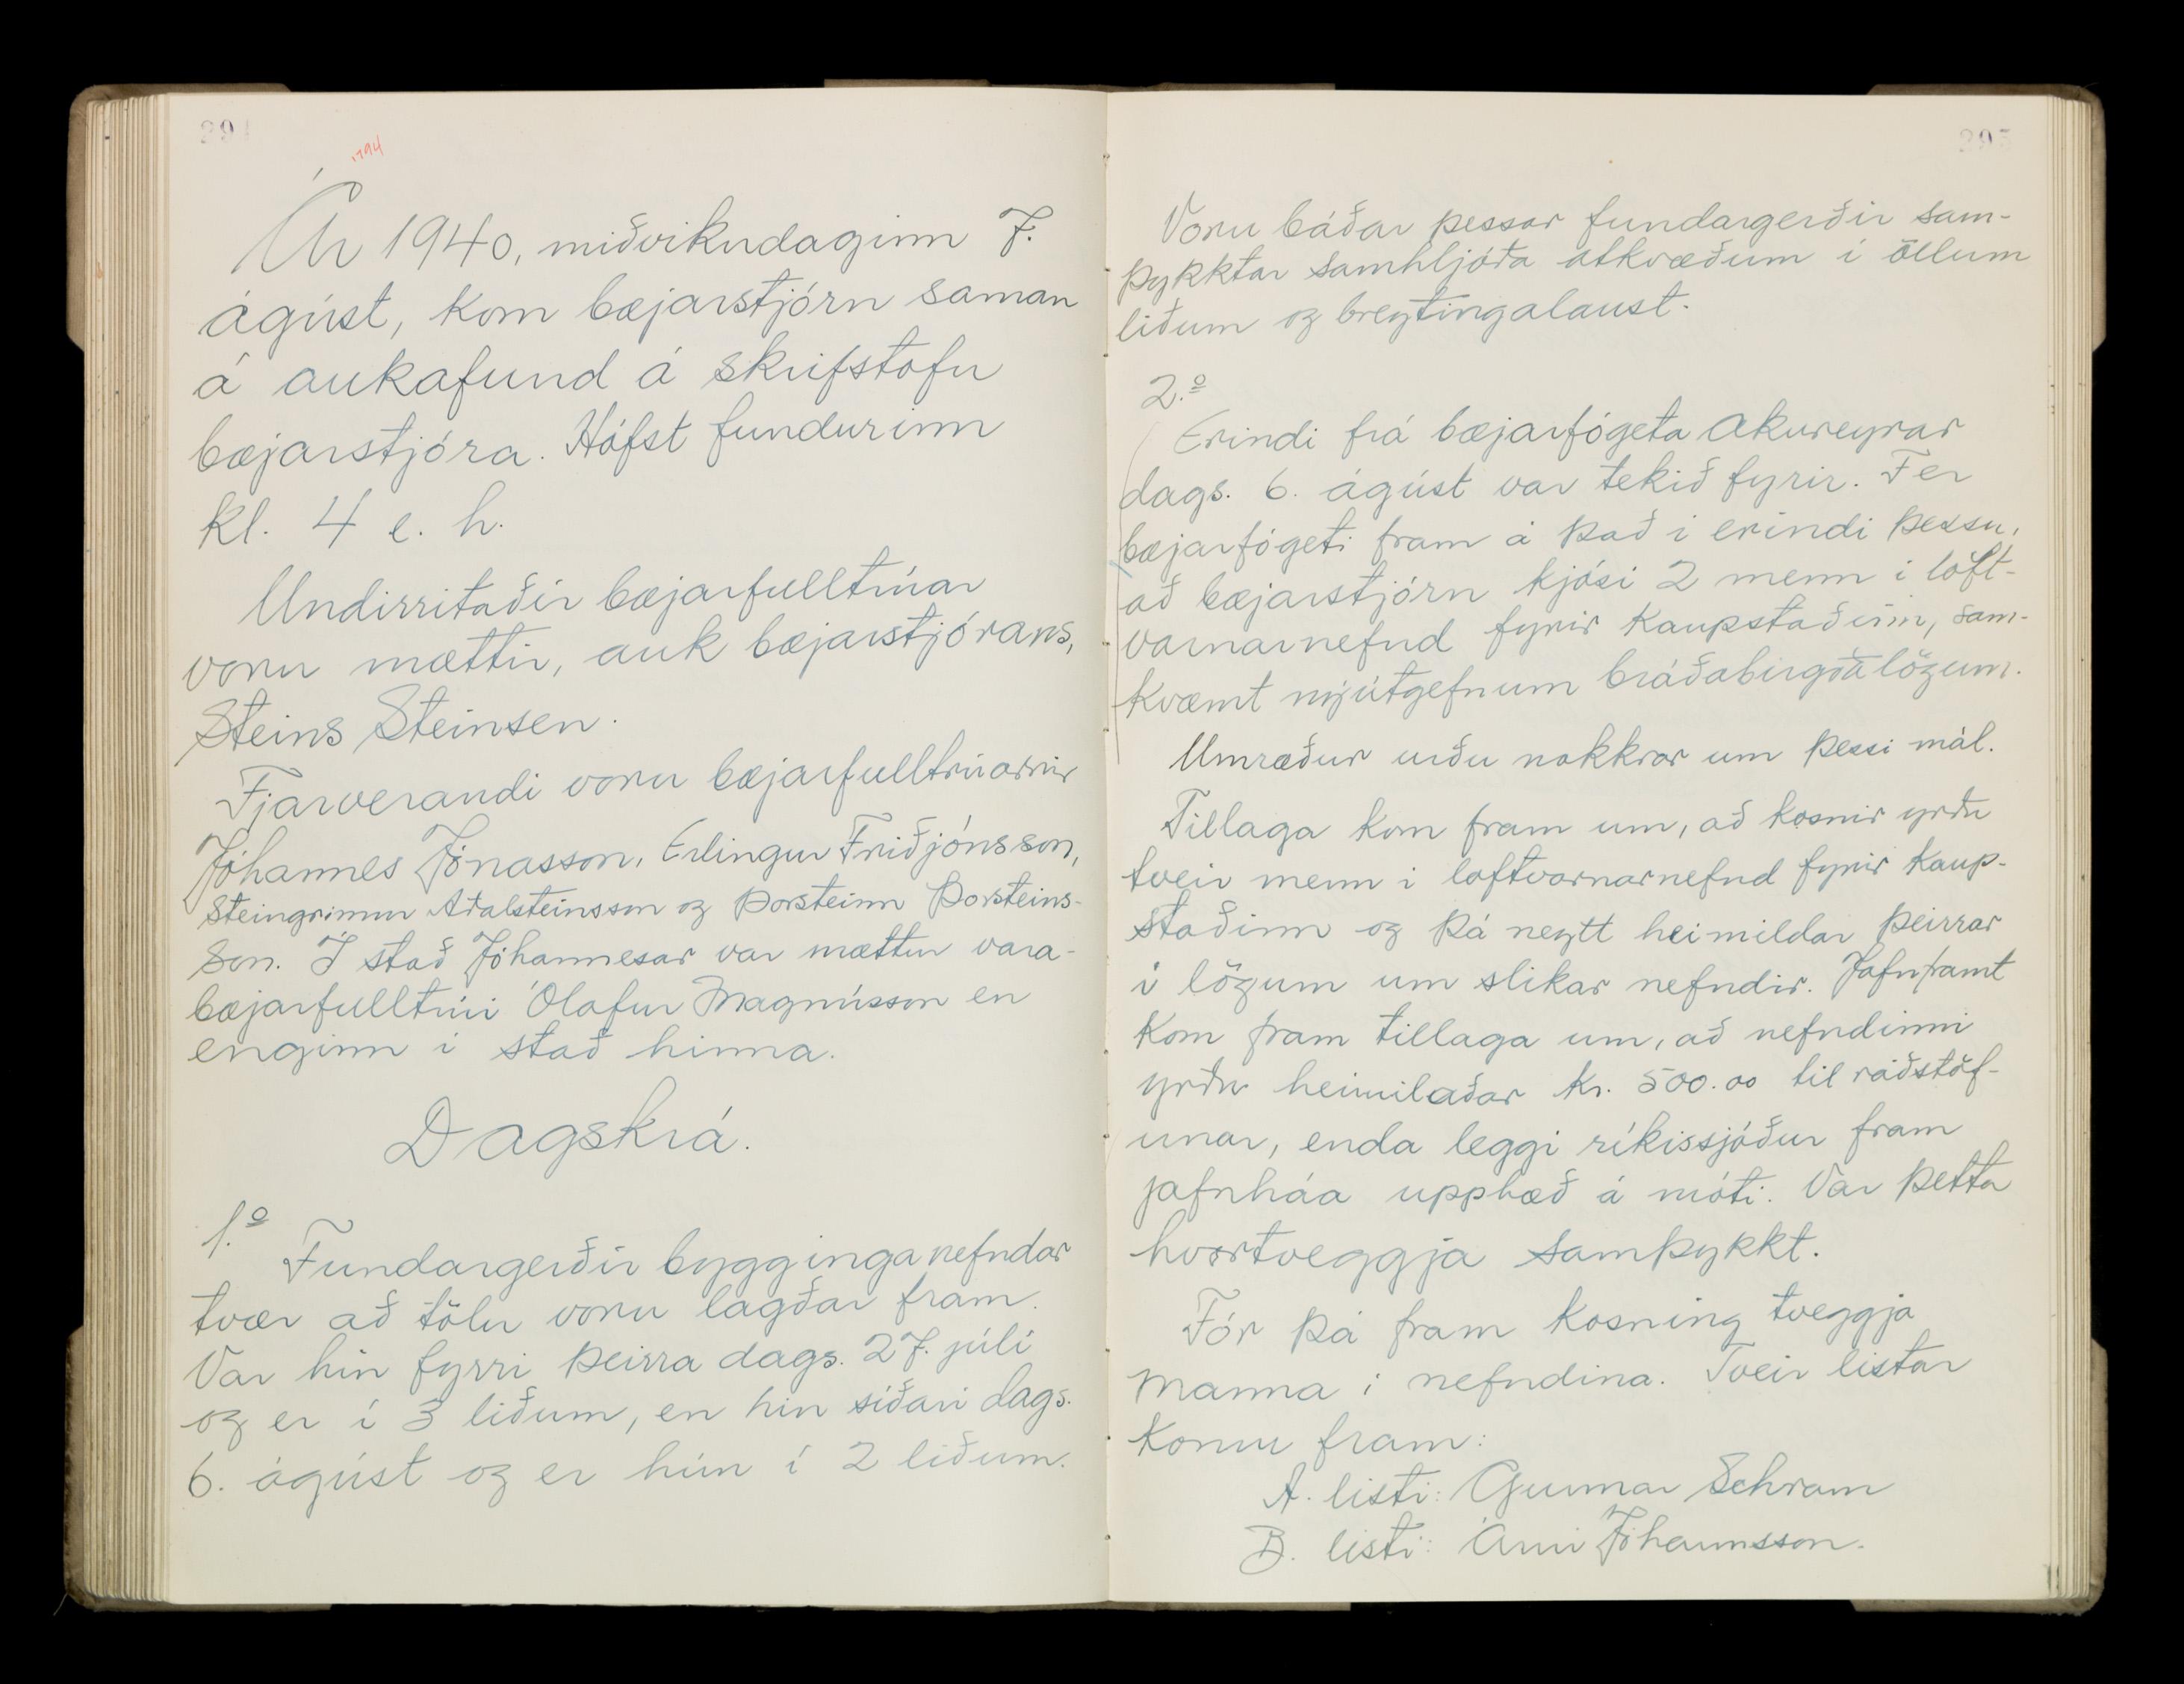 294
1794
Ár 1940, miðvikudaginn 7.
ágúst, kom bæjarstjórn saman
á aukafund á skrifstofu
bæjarstjóra. Hófst fundurinn
kl. 4 e. h.
Undirritaðir bæjarfulltrúar
voru mættir, auk bæjarstjórans,
Steins Steinsen.
Fjarverandi voru bæjarfulltrúarnir
Jóhannes Jónasson, Erlingur Friðjónsson,
Steingrímur Aðalsteinsson og Þorsteinn Þorsteins-
son. Í stað Jóhannesar var mættur vara-
bæjarfulltrúi Ólafur Magnússon en
enginn í stað hinna.
Dagskrá.
1.º
Fundargerðir bygginganefndar
tvær að tölu voru lagðar fram.
Var hin fyrri þeirra dags. 27. júlí
og er í 3 liðum, en hin síðari dags.
6. ágúst og er hún í 2 liðum.
295
Voru báðar þessar fundargerðir sam-
þykktar samhljóða atkvæðum í öllum
liðum og breytingalaust.
2.º
Erindi frá bæjarfógeta Akureyrar
dags. 6. ágúst var tekið fyrir. Fer
bæjarfógeti fram á það í erindi þessu,
að bæjarstjórn kjósi 2 menn í loft-
varnarnefnd fyrir kaupstaðinn, sam-
kvæmt nýútgefnum bráðabirgðalögum.
Umræður urðu nokkrar um þessi mál.
Tillaga kom fram um, að kosnir yrðu
tveir menn í loftvarnarnefnd fyrir kaup-
staðinn og þá neytt heimildar þeirrar
í lögum um slíkar nefndir. Jafnframt
kom fram tillaga um, að nefndinni
yrðu heimilaðar kr. 500.00 til ráðstöf-
unar, enda leggi ríkissjóður fram
jafnháa upphæð á móti. Var þetta
hvortveggja samþykkt.
Fór þá fram kosning tveggja
manna í nefndina. Tveir listar
komu fram:
A. listi: Gunnar Schram
B. listi: Árni Jóhannsson.